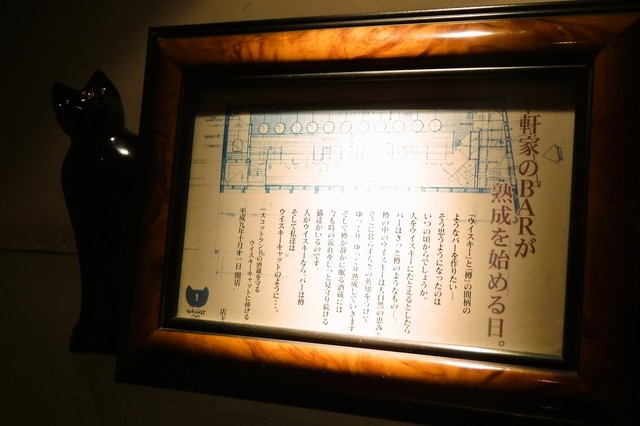 軒家のBARが
熟成を始める日。
「ウイスキー」と「樽」の間柄の
ようなバーを作りたい―
そう思うようになったのは
いつの頃からでしょうか。
人をウイスキーにたとえるとしたら
バーはきっと樽のようなもの―。
樽の中のウイスキーは大自然の恵みと
そこに暮らす人々の英知をうけて
ゆっくりゆっくり熟成していきます
そして樽が静かに眠る酒蔵には
今も時の流れをじっと見守り続ける
猫達がいるのです。
人がウイスキーなら、バーは樽
そして私達は
ウイスキーキャットのように…。
スコットランドの酒蔵を守る
ウイスキーキャットに捧げる
平成九年十月 一日 開店
店主
WHISKY
CAT